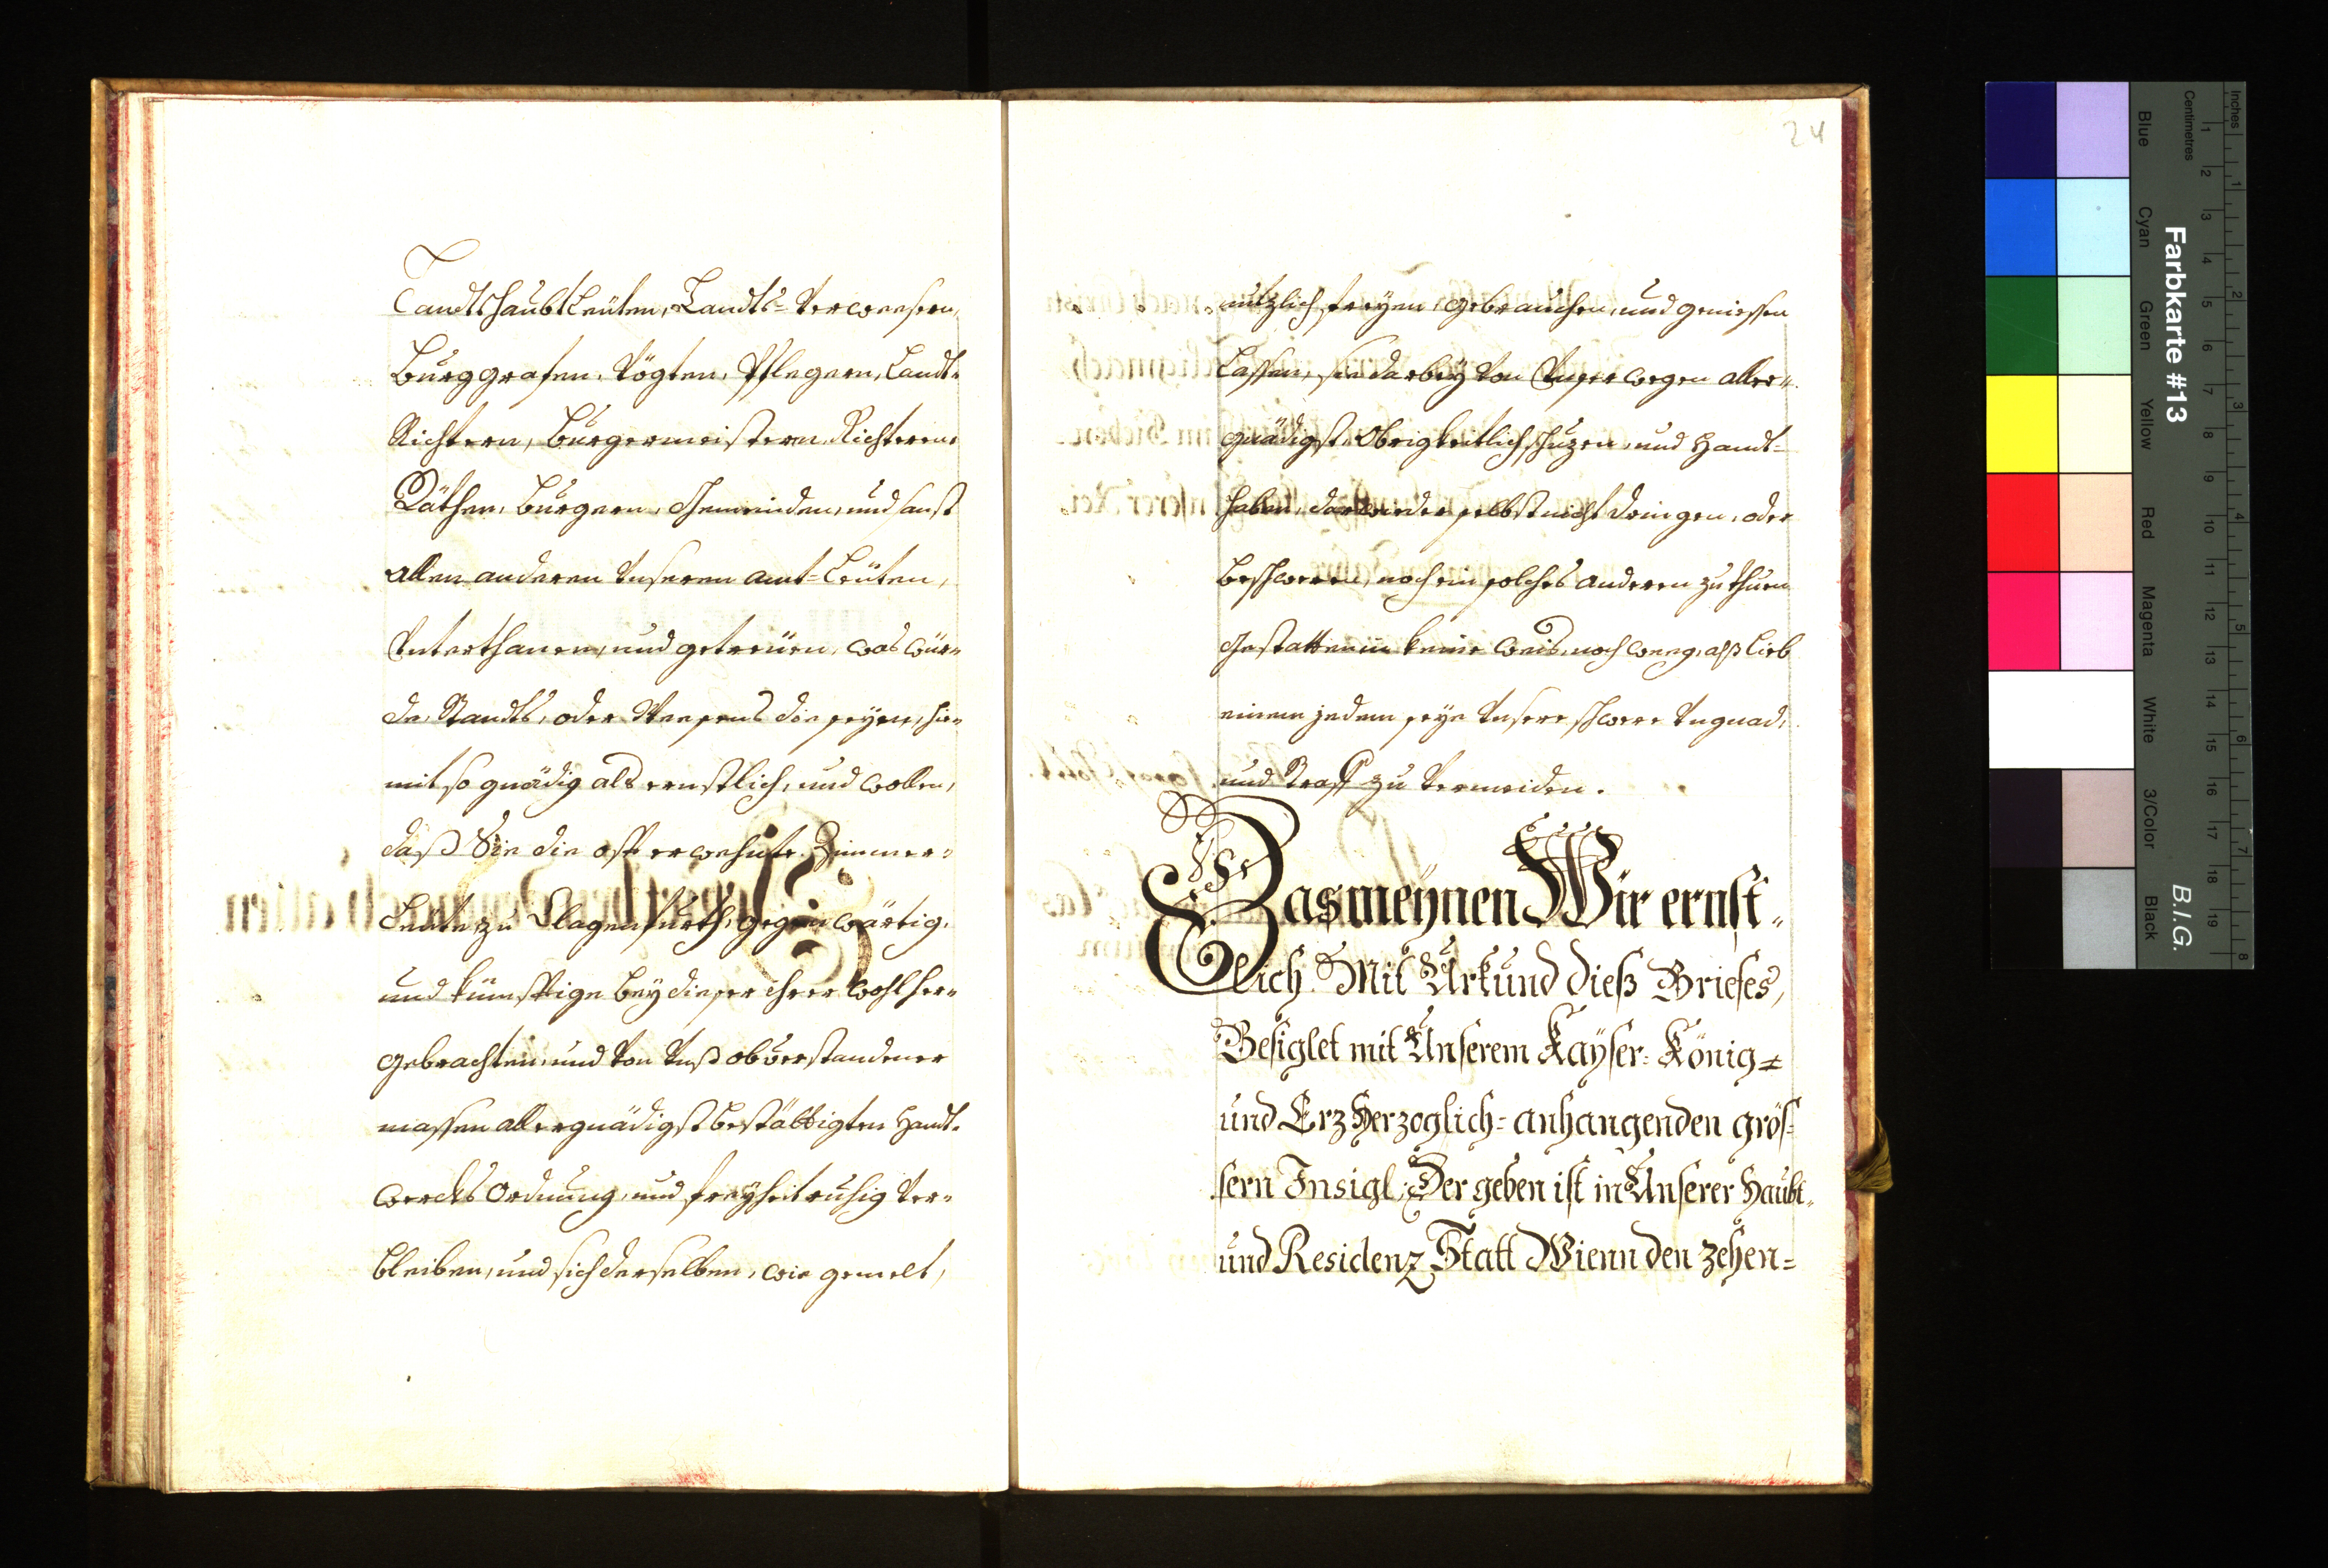 Landtshaubtleüten, Landts-Verweesern,
Burggrafen, Vögten, Pflegern, Landt-
Richtern, Burgermeistern, Richteren,
Räthen, Burgern, Gemeinden, und sonst
allen anderen Unseren Amt-Leüten,
Unterthanen, und getreüen, was Wür-
de, Standts, oder Weesens die seyen, hie-
mit so gnädig als ernstlich, und wollen,
daß Sie die offt erwehnte Zimmer-
Leute zu Clagenfurth, gegenwärtig,
und künfftige bey dieser ihrer wohl her-
gebrachten, und von Unß obverstandener
massen allergnädigst bestättigten Handt-
wercks Ordnung, und freyheit ruhig ver-
bleiben, und sich derselben, wie gemelt,
24
nutzlich freyen, gebrauchen, und geniessen
lassen, sie darbey von Unsertwegen aller-
gnädigst Obrigkeitlich schuzen, und handt-
haben, darwieder selbst nicht dringen, oder
beschweren, noch ein solches anderen zu thuen
gestatten in keine weis, noch weeg, alß lieb
einem jedem seye Unsere schwere Ungnad,
und Straff zu vermeiden.
Das meynen Wir ernst-
lich. Mit Urkund dieß Briefes,
Besiglet mit Unserem Kayser- König-
und Erzherzoglich- anhangenden grös-
sern Insigl; Der geben ist in Unserer Haubt-
und Residenz Statt Wienn den zehen-
Inches
Centimetres
1 2 3 4 5 6 7 8
1 2 3 4 5 6 7 8 9 10 11 12 13 14 15 16 17 18 19
Farbkarte #13
B.I.G.
Blue
Cyan
Green
Yellow
Red
Magenta
White
3/Color
Black